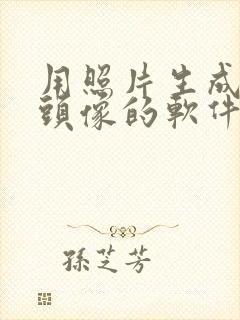 用照片生成
頭像的軟件
孫芝芳